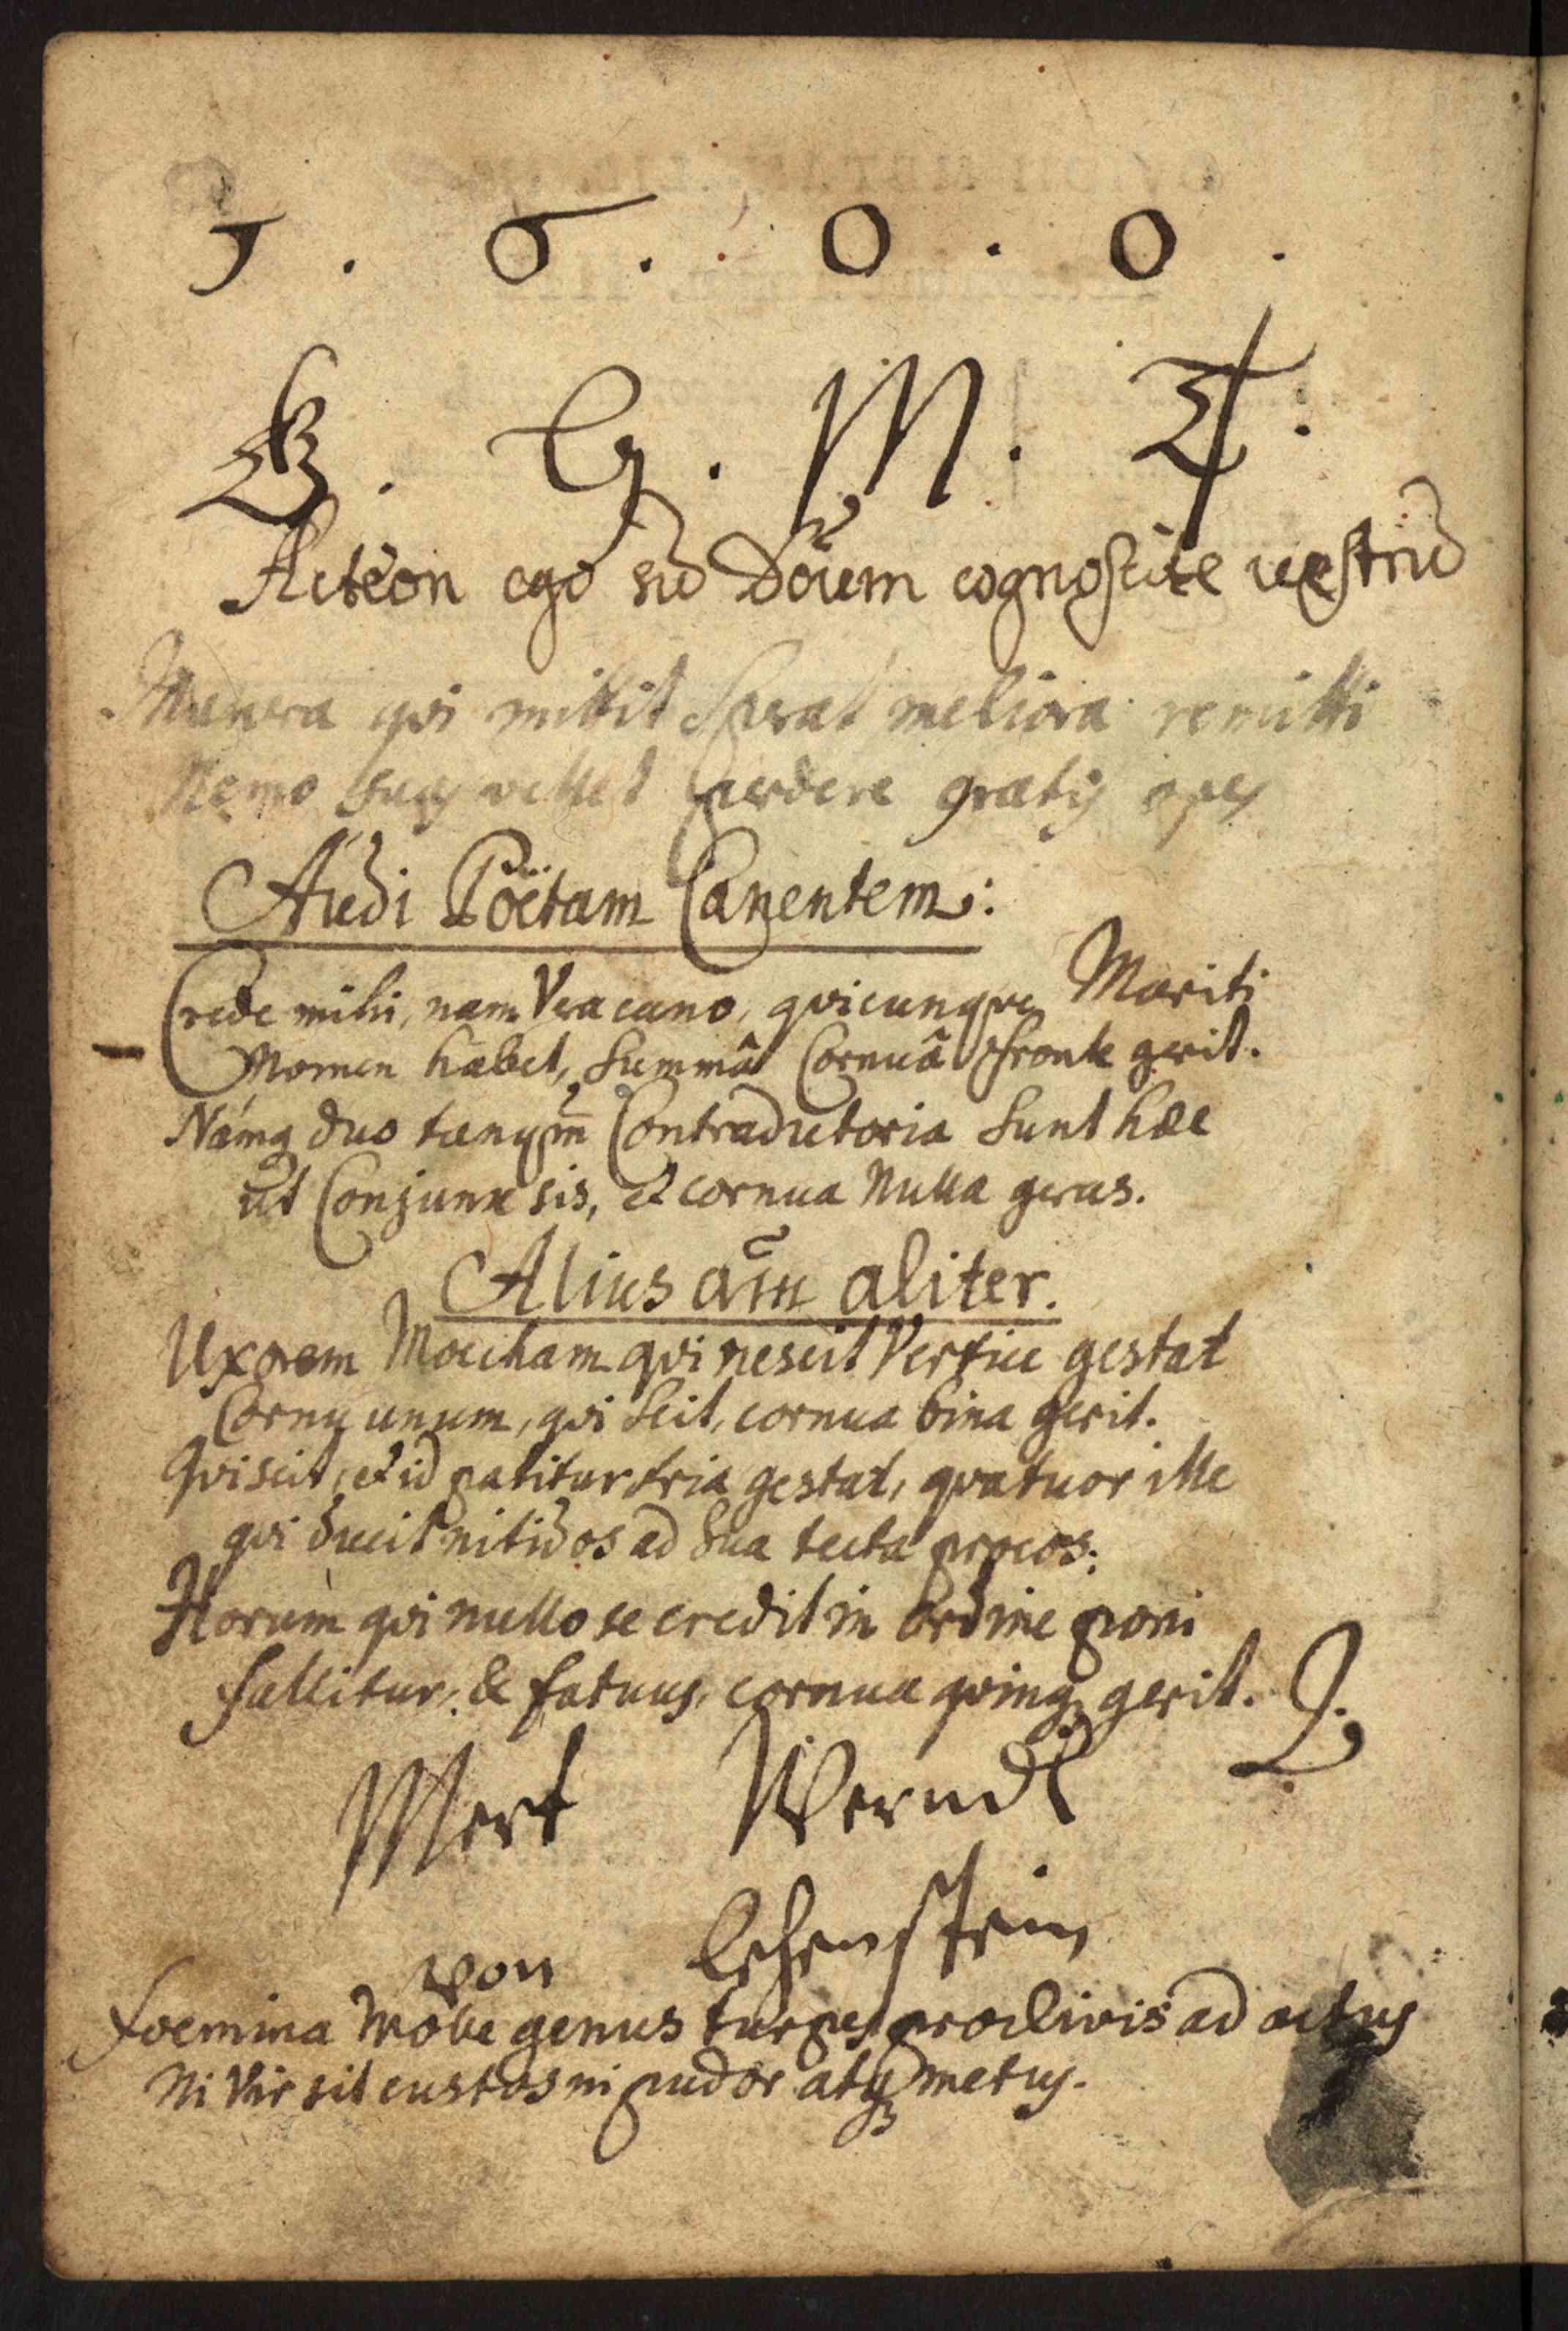 1 . 6 . 0 . 0 .
G . M .
Acteon ego sũ Dõium cognoscite vestrũ
Munera qvi mittit sperat meliora remitti
Nemo suas vellet perdere gratis opes
Audi Poëtam Canentem:
Crede mihi, nam Vera cano, qvicunqve Mariti
Nomen habet, Summâ Cornuâ fronte gerit.
Námq duo tanqm̃ Contradictoria Sunt hæc
ut Conjunx sis, et cornua Nulla geras.
Alius aũt aliter.
Uxorem Moecham qvi nescit Vertice gestat
Cornu unum, qvi Scit, cornua bina gerit.
Qvi scit, et id patitur tria gestat, qvatuor ille
qvi ducit nitidos ad Sua tecta procos:
Horum qvi nullo se credit in ordine poni
fallitur, & fatuus, cornua qvinq gerit.
Wert Werndl
von Lehenstein
foemina Mobile genus turpes proclivis ad actus
Ni Vir sit custos ni pudor atqȝ metus.